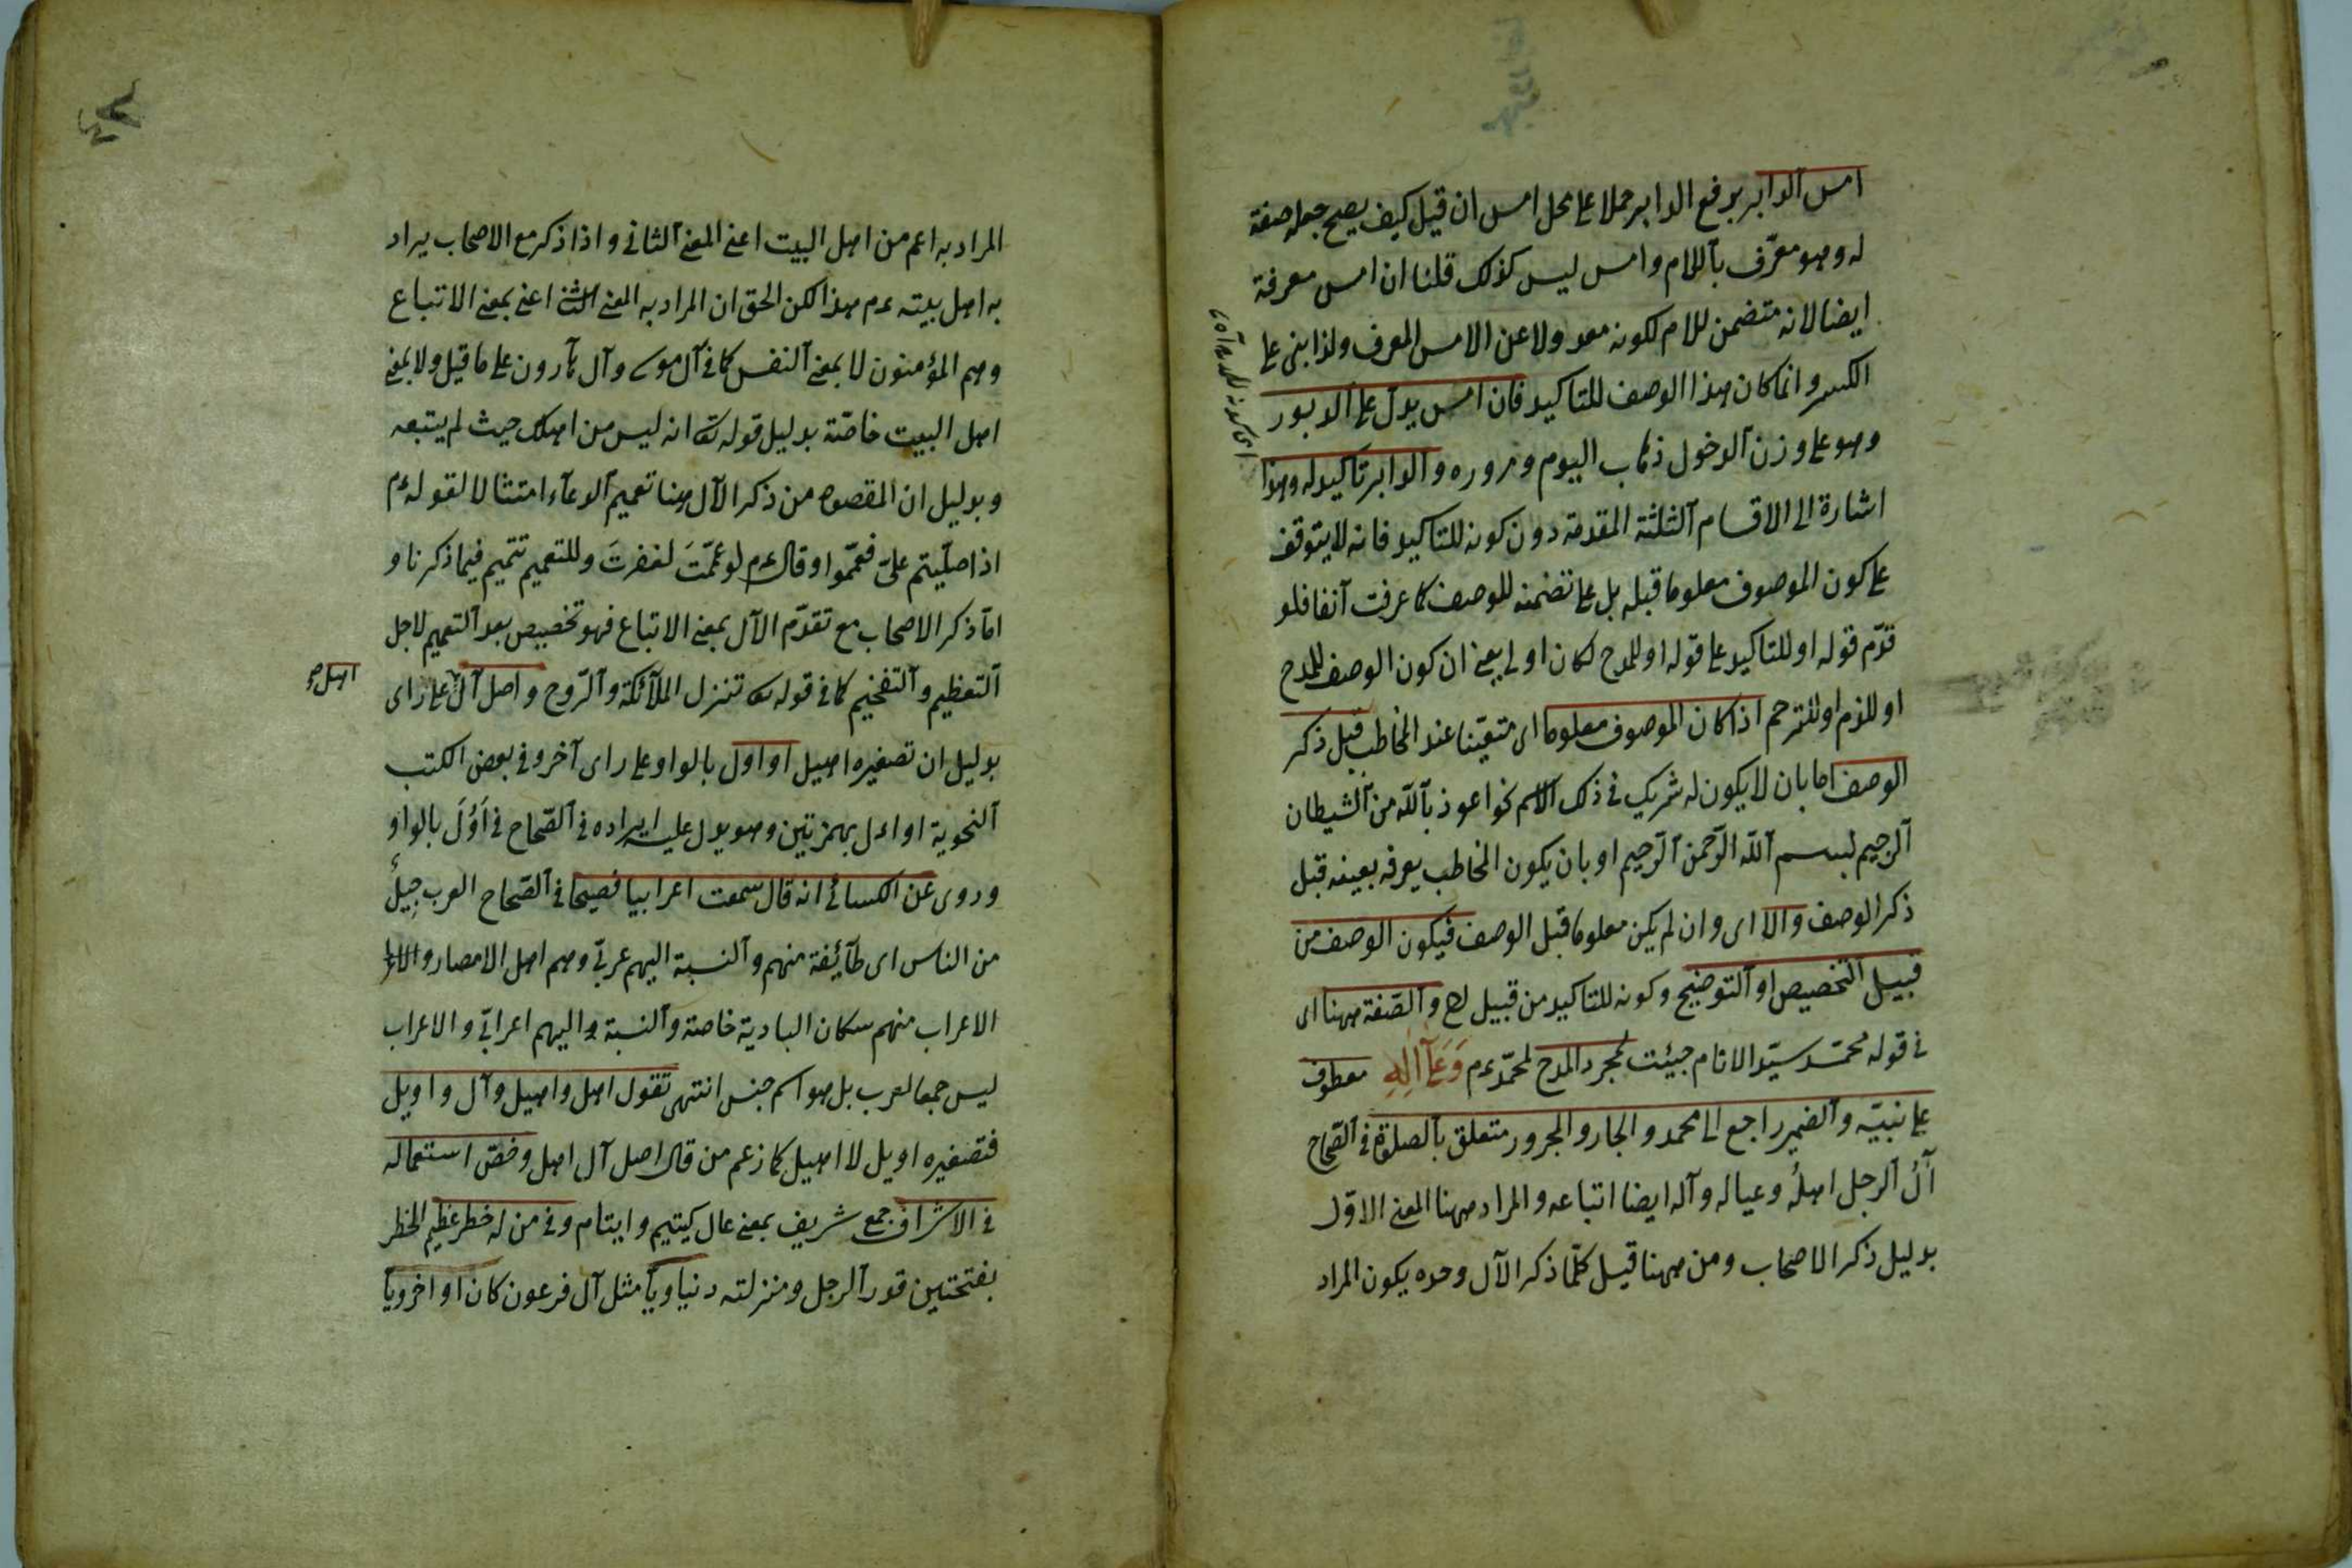 امس الدابر برفع الدابر حملا على محل امس ان قيل كيف يصح جعله صفة
له وهو معرّف باللام وامس ليس كذلك قلنا ان امس معرفة
ايضا لانه متضمن للام لكونه معدولا عن الامس المعرف ولذا بنى على
الكسر وانما كان هذا الوصف للتاكيد فان امس يدل على الدبور
وهو على وزن الدخول ذهاب اليوم ومروره والدابر تاكيد له وهذا
اشارة الى الاقسام الثلثة المقدمة دون كونه للتاكيد فانه لا يتوقف
على كون الموصوف معلوما قبله بل على تضمنه للوصف كما عرفت آنفا فلو
قدّم قوله او للتاكيد على قوله او للمدح لكان اولى يعنى ان كون الوصف للمدح
او للذم او للترحم اذا كان الموصوف معلوما اى متعيّنا عند المخاطب قبل ذكر
الوصف اما بان لا يكون له شريك فى ذلك الاسم نحو اعوذ بالله من الشيطان
الرجيم بسم الله الرّحمن الرّحيم او بان يكون المخاطب يعرفه بعينه قبل
ذكر الوصف والا اى وان لم يكن معلوما قبل الوصف فيكون الوصف من
قبيل التخصيص او التوضيح وكونه للتاكيد من قبيل والصّفة ههنا اى
فى قوله محمّد سيّد الانام جيئت لمجرد المدح لمحمّد عم وَعَلَى آلِهِ معطوف
على نبيّه والضمير راجع الى محمد والجار والمجرور متعلق بالصلوة فى الصّحاح
آلُ الرجل اهلُه وعياله وآله ايضا اتباعه والمراد ههنا المعنى الاوّل
بدليل ذكر الاصحاب ومن ههنا قيل كلّما ذكر الآل وحده يكون المراد
المراد به اعم من اهل البيت اعنى المعنى الثانى واذا ذكر مع الاصحاب يراد
به اهل بيته عم هذا لكن الحق ان المراد به المعنى اعنى بمعنى الاتباع
وهم المؤمنون لا بمعنى النفس كما فى آل موسى وآل هارون على ما قيل ولا بمعنى
اهل البيت خاصّة بدليل قوله تعه انه ليس من اهلك حيث لم يتبعه
وبدليل ان المقصود من ذكر الآل هنا تعميم الدعاء امتثالا لقوله عم
اذا صلّيتم علىّ فعمّموا وقال عم لو عمّمتَ لغفرتَ وللتعميم تتميم فيما ذكرنا و
امّا ذكر الاصحاب مع تقدّم الآل بمعنى الاتباع فهو تخصيص بعد التعميم لاجل
التعظيم والتفخيم كما فى قوله تعه تنزل الملآئكة والرّوح واصل آل على راى
اهل صح
بدليل ان تصغيره اهيل او اول بالواو على راى آخر وفى بعض الكتب
النحوية او اءل بهمزتين وهو يدل عليه ايراده فى الصّحاح فى اَوَلَ بالواو
وروى عن الكسائى انه قال سمعت اعرابيا فصيحا فى الصّحاح العرب جِيلٌ
من الناس اى طآئفة منهم والنسبة اليهم عربىّ وهم اهل الامصار
الاعراب منهم سكان البادية خاصة والنسبة اليهم اعرابىّ والاعراب
ليس جمعا لعرب بل هو اسم جنس انتهى تقول اهل واهيل وآل واويل
فتصغيره اويل لا اهيل كما زعم من قال اصل آل اهل وخصّ استعماله
فى الاشراف جمع شريف بمعنى عال كيتيم وايتام وفى من له خطر عظيم الخطر
بفتحتين قدر الرجل ومنزلته دنياويّا مثل آل فرعون كان او اخرويّا